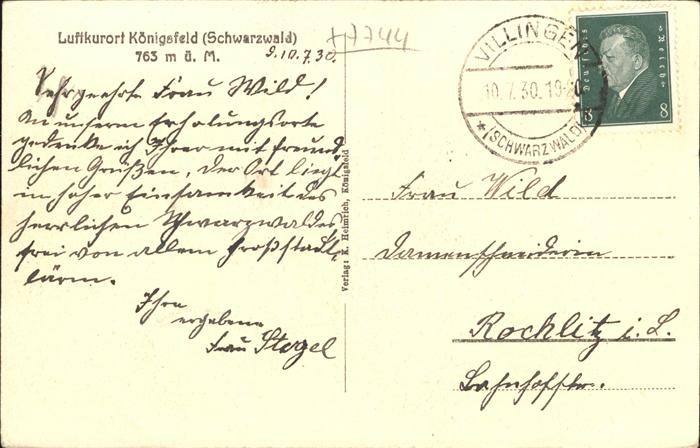 Luftkurort Königsfeld (Schwarzwald)
763 m ü. M.
+7744
9.10.7.30.
Sehrgeehrte Frau Wild!
An unserm Erholungsorte
gedenke ich Ihrer mit freund
lichen Grüßen, der Ort liegt
in hoher Einsamkeit des
herrlichen Schwarzwaldes
frei von allem Großstadt-
lärm.
Ihre
ergebene
Frau Stegel
Verlag: K. Heimrich, Königsfeld
VILLINGEN
10.7.30.19-
* (SCHWARZWALD)
Deutsches Reich
8 8
Frau Wild
Damenschneiderin
Rochlitz i. S.
Bahnhofstr.